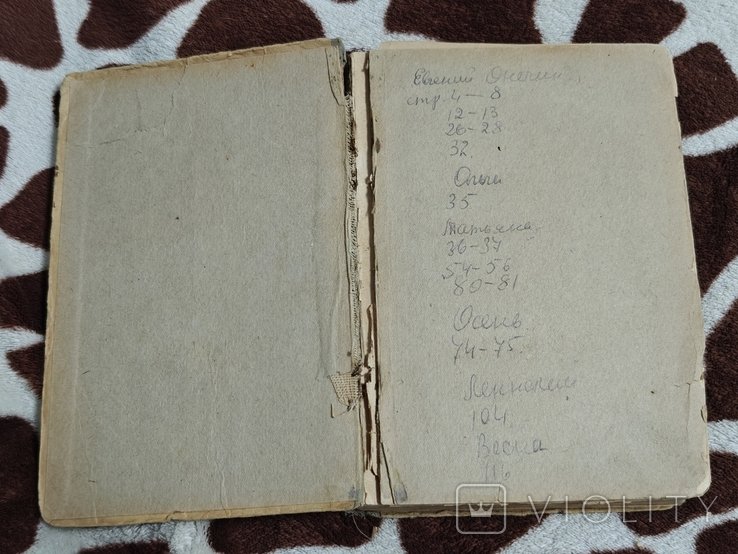 Евгений Онегин
стр. 4 – 8
12 – 13
26 – 28
32
Ольга
35
Татьяна
36 – 37
54 – 56
80 – 81
Осень
74 – 75
104
Весна
VIOLITY